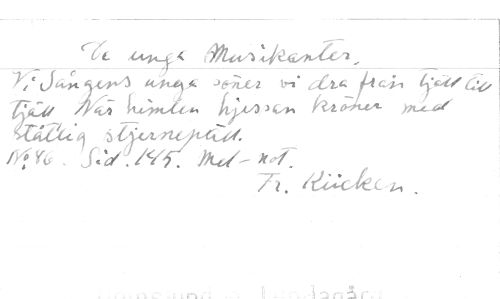 De unga Musikanter.
Vi Sångens unga söner vi dra från tjäll till
tjäll När himlen hjessan kröner med
ståtlig stjernepäll.
No 46. Sid. 145. Mel-not.
Fr. Kücken.